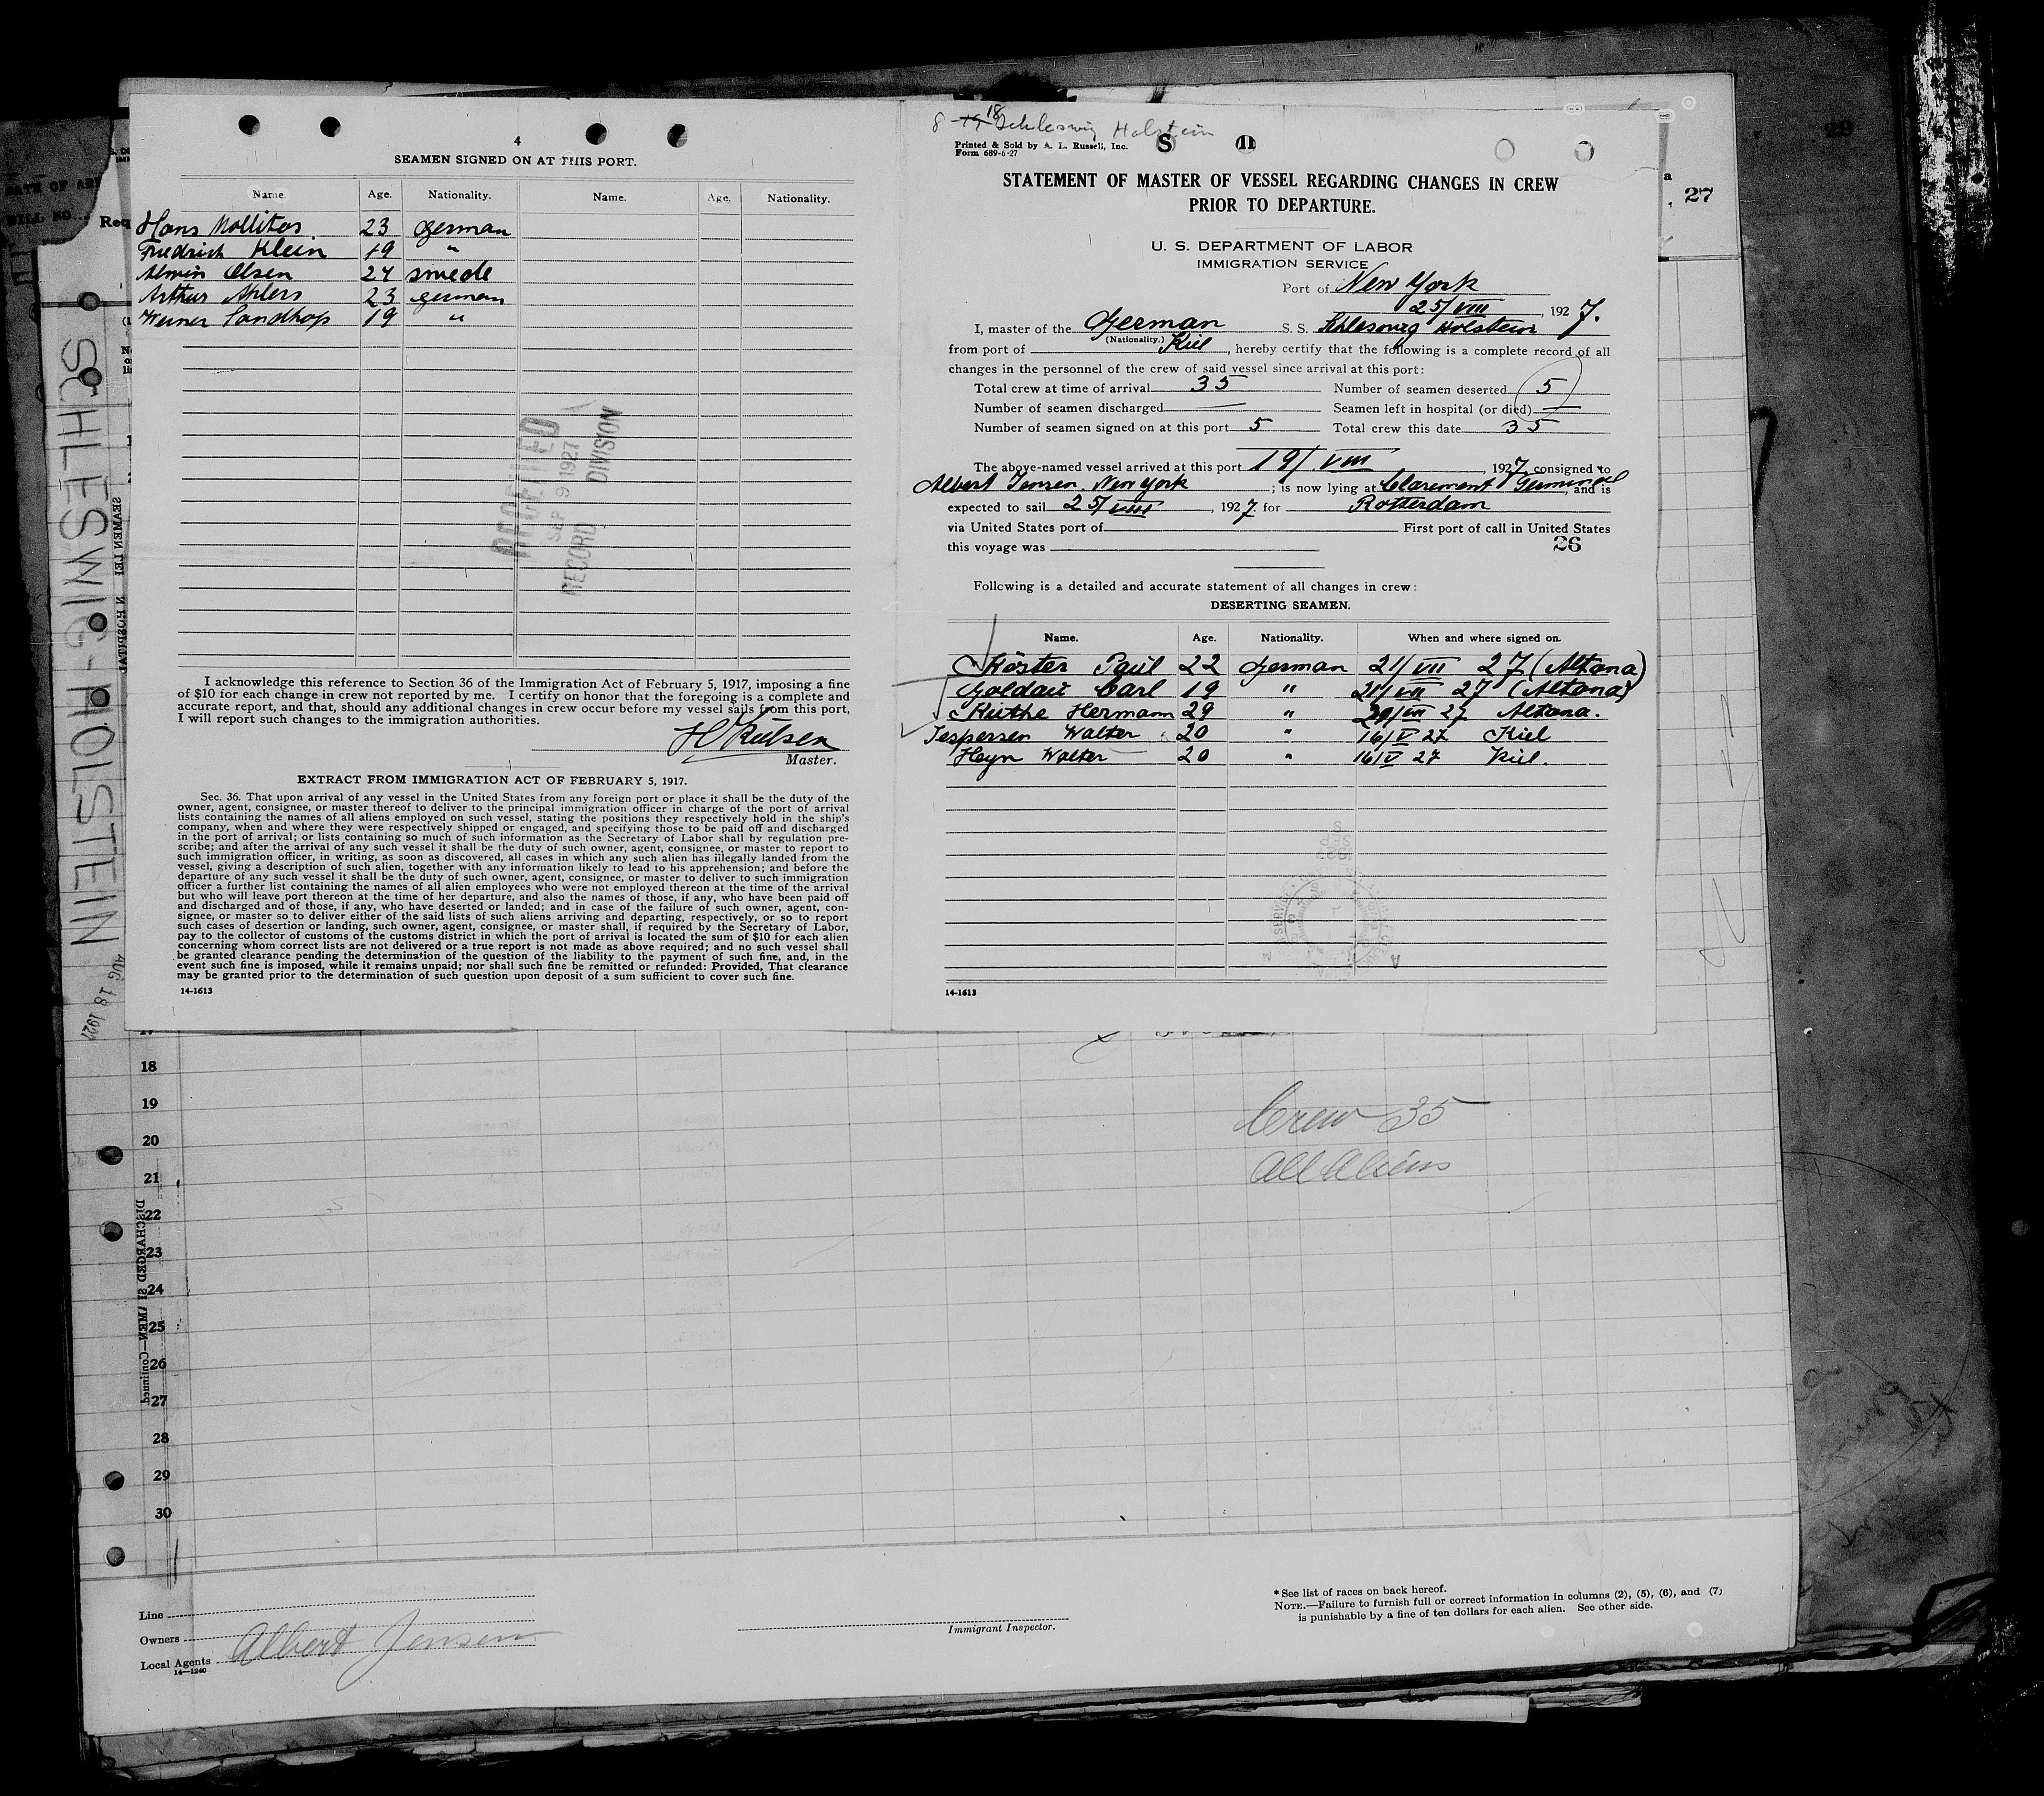 4
SEAMEN SIGNED ON AT THIS PORT.
Name. Age. Nationality. Name. Age. Nationality.
Hans Mollitor 23 German
Friedrich Klein 19 "
Almin Olsen 24 swede
Arthur Ahlers 23 german
Werner Sandhop 19 "
RECEIVED
SEP 9 1927
RECORD DIVISION
I acknowledge this reference to Section 36 of the Immigration Act of February 5, 1917, imposing a fine
of $10 for each change in crew not reported by me. I certify on honor that the foregoing is a complete and
accurate report, and that, should any additional changes in crew occur before my vessel sails from this port,
I will report such changes to the immigration authorities.
Master.
EXTRACT FROM IMMIGRATION ACT OF FEBRUARY 5, 1917.
Sec. 36. That upon arrival of any vessel in the United States from any foreign port or place it shall be the duty of the
owner, agent, consignee, or master thereof to deliver to the principal immigration officer in charge of the port of arrival
lists containing the names of all aliens employed on such vessel, stating the positions they respectively hold in the ship's
company, when and where they were respectively shipped or engaged, and specifying those to be paid off and discharged
in the port of arrival; or lists containing so much of such information as the Secretary of Labor shall by regulation pre-
scribe; and after the arrival of any such vessel it shall be the duty of such owner, agent, consignee, or master to report to
such immigration officer, in writing, as soon as discovered, all cases in which any such alien has illegally landed from the
vessel, giving a description of such alien, together with any information likely to lead to his apprehension; and before the
departure of any such vessel it shall be the duty of such owner, agent, consignee, or master to deliver to such immigration
officer a further list containing the names of all alien employees who were not employed thereon at the time of the arrival
but who will leave port thereon at the time of her departure, and also the names of those, if any, who have been paid off
and discharged and of those, if any, who have deserted or landed; and in case of the failure of such owner, agent, con-
signee, or master so to deliver either of the said lists of such aliens arriving and departing, respectively, or so to report
such cases of desertion or landing, such owner, agent, consignee, or master shall, if required by the Secretary of Labor,
pay to the collector of customs of the customs district in which the port of arrival is located the sum of $10 for each alien
concerning whom correct lists are not delivered or a true report is not made as above required; and no such vessel shall
be granted clearance pending the determination of the question of the liability to the payment of such fine, and, in the
event such fine is imposed, while it remains unpaid; nor shall such fine be remitted or refunded: Provided, That clearance
may be granted prior to the determination of such question upon deposit of a sum sufficient to cover such fine.
14-1613
8-18 Schleswig Holstein
Printed & Sold by A. L. Russell, Inc.
Form 689-6-27
S 11
STATEMENT OF MASTER OF VESSEL REGARDING CHANGES IN CREW
PRIOR TO DEPARTURE.
U. S. DEPARTMENT OF LABOR
IMMIGRATION SERVICE
Port of New York
25/VIII, 1927.
I, master of the German S. S. Schleswig Holstein
(Nationality.)
from port of Kiel, hereby certify that the following is a complete record of all
changes in the personnel of the crew of said vessel since arrival at this port:
Total crew at time of arrival 35 Number of seamen deserted 5
Number of seamen discharged — Seamen left in hospital (or died) —
Number of seamen signed on at this port 5 Total crew this date 35
The above-named vessel arrived at this port 19/VIII, 1927, consigned to
Albert Jensen. New York; is now lying at Claremont, and is
expected to sail 25/VIII, 1927 for Rotterdam
via United States port of First port of call in United States
this voyage was
26
Following is a detailed and accurate statement of all changes in crew:
DESERTING SEAMEN.
Name. Age. Nationality. When and where signed on.
Köster Paul 22 German 21/VII 27 (Altona)
Goldau Carl 19 " 21/VII 27 (Altona)
Kuthe Hermann 29 " 29/VII 27 Altona.
Jespersen Walter 20 " 16/V 27 Kiel
Heyn Walter 20 " 16/V 27 Kiel.
14-1613
SCHLESWIG-HOLSTEIN
AUG 18 1927
DISCHARGED SEAMEN—Continued
27
29
18
19
20
21
22
23
24
25
26
27
28
29
30
Crew 35
All Aliens
Line
Owners
Local Agents Albert Jensen
14—1240
Immigrant Inspector.
* See list of races on back hereof.
NOTE.—Failure to furnish full or correct information in columns (2), (5), (6), and (7)
is punishable by a fine of ten dollars for each alien. See other side.